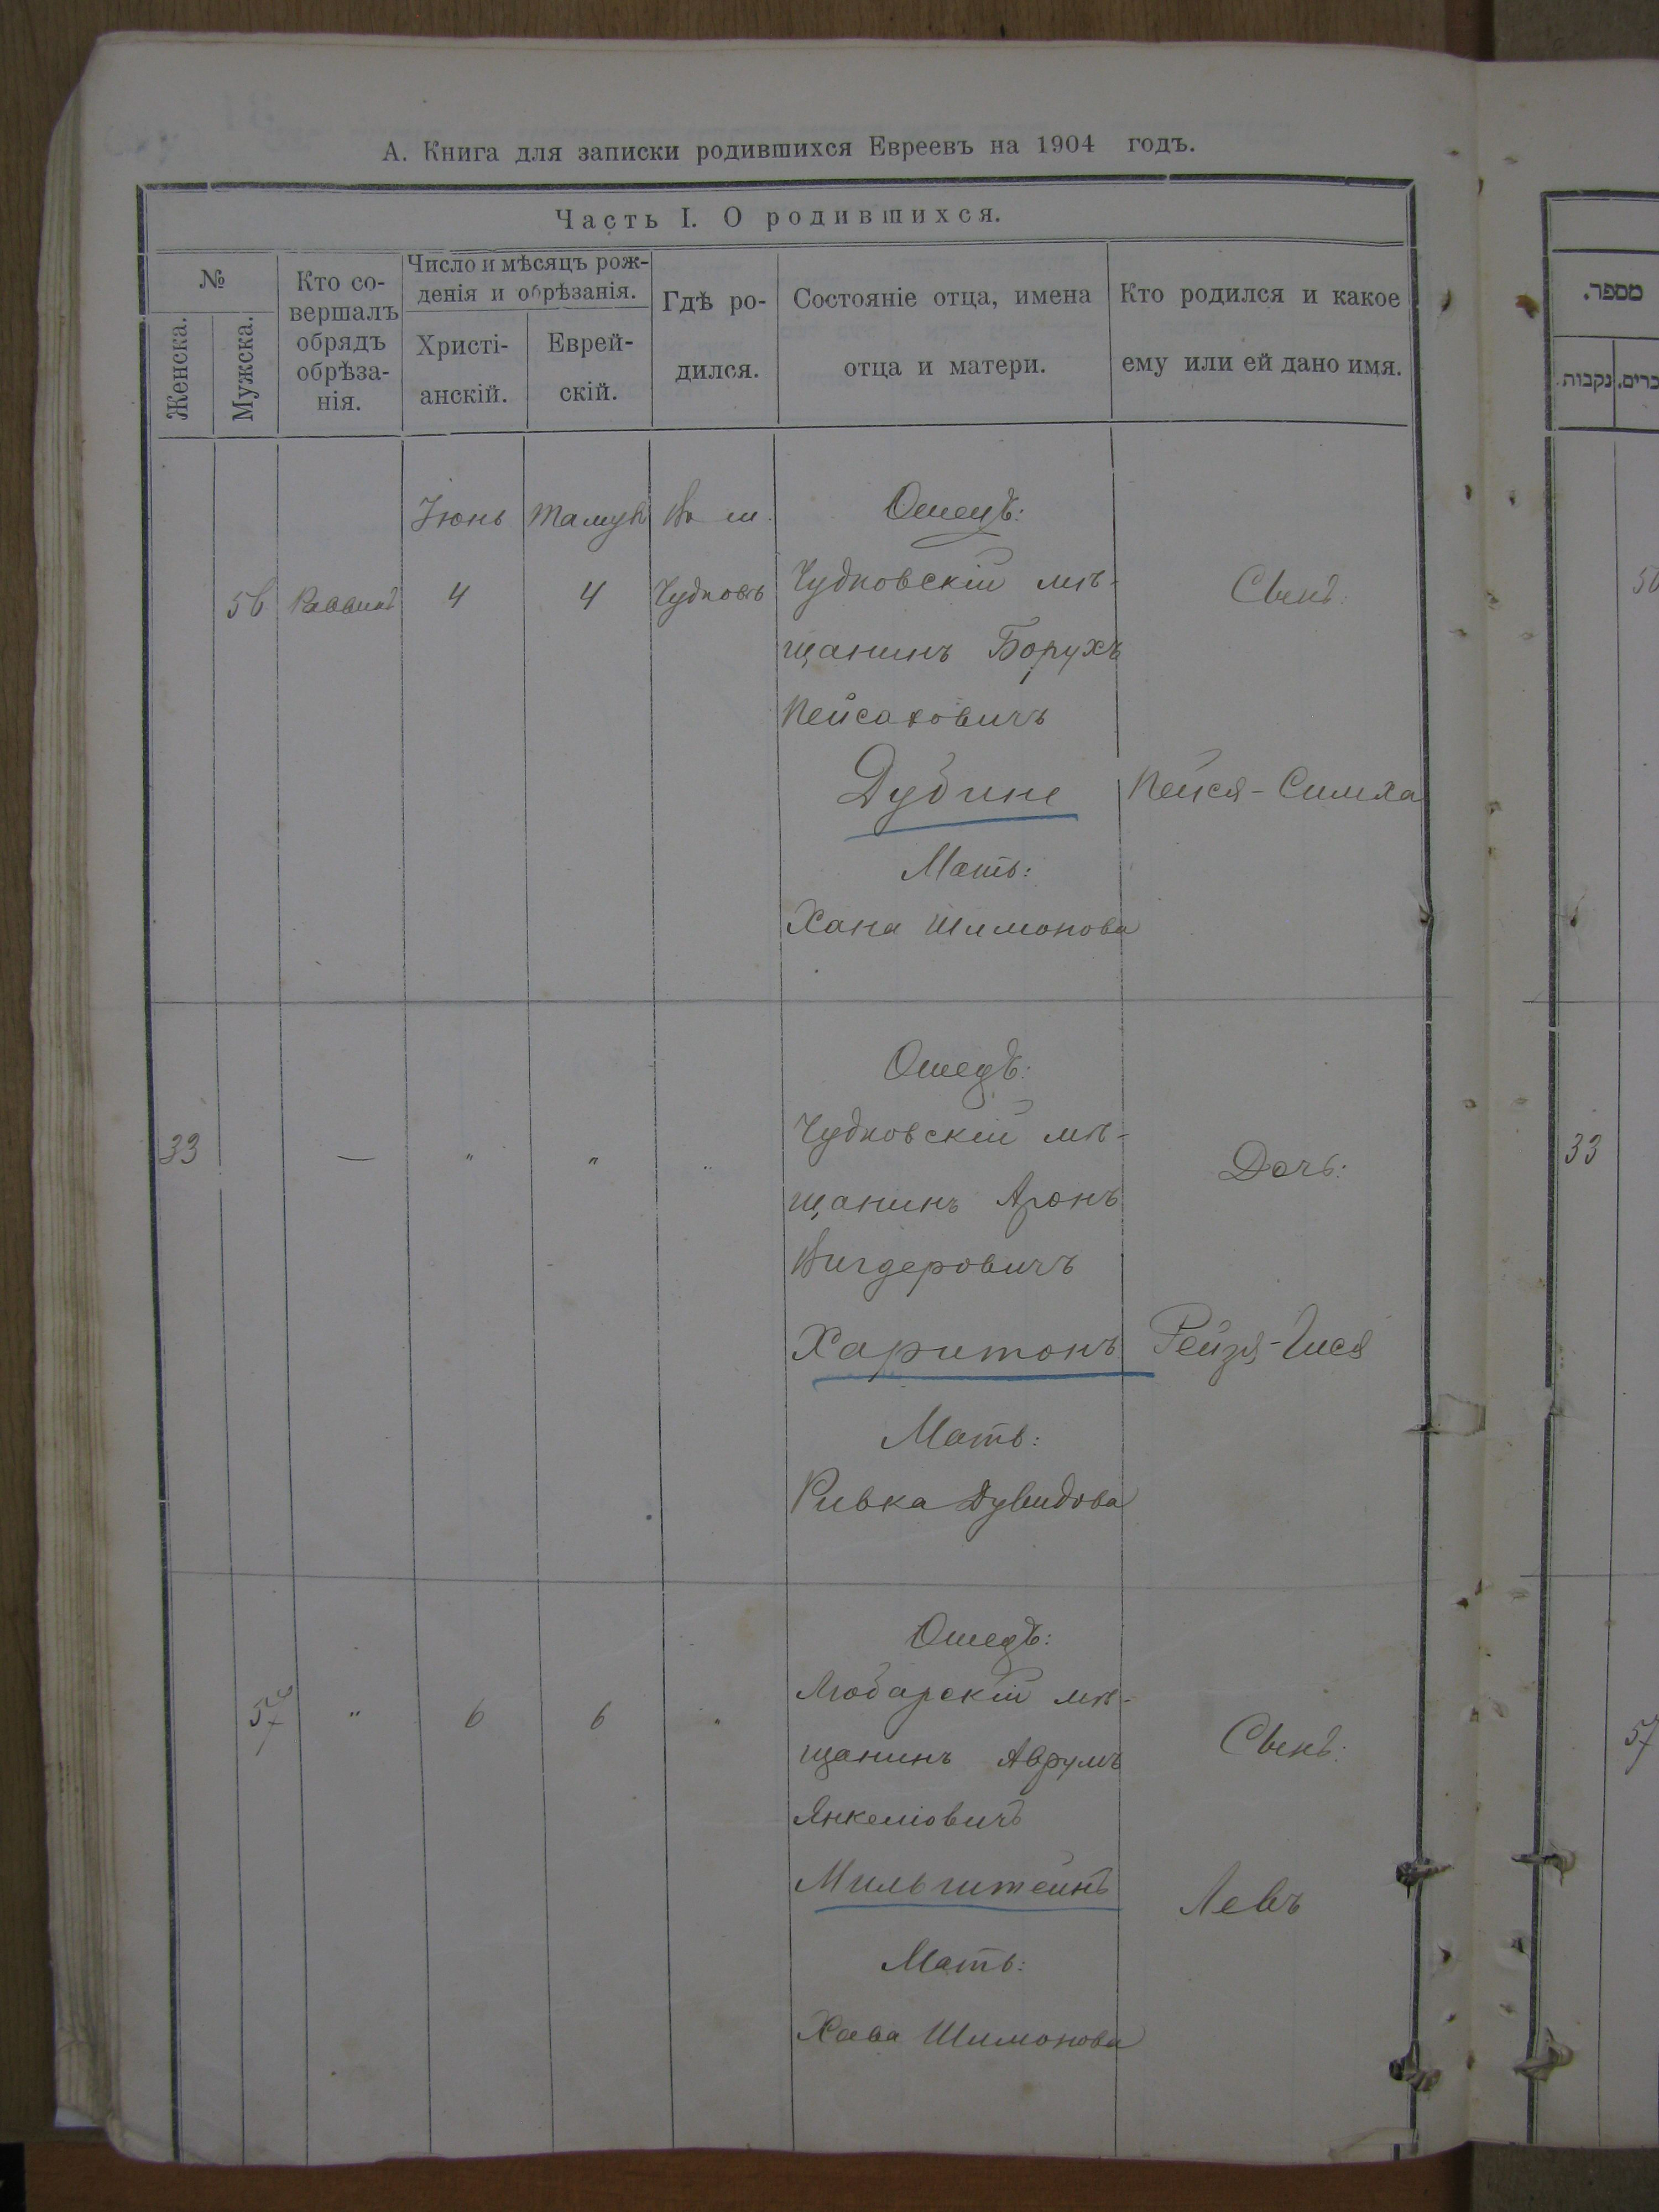 А. Книга для записки родившихся Евреевъ на 1904 годъ.
Часть I. О родившихся.
№
Женска.
Мужска.
Кто со-
вершалъ
обрядъ
обрѣза-
нія.
Число и мѣсяцъ рож-
денія и обрѣзанія.
Христі-
анскій.
Еврей-
скій.
Гдѣ ро-
дился.
Состояніе отца, имена
отца и матери.
Кто родился и какое
ему или ей дано имя.
מספר.
נקבות
Іюнь Тамуз В м.
56 Раввинъ 4 4 Чудновъ
Отецъ:
Чудновскій мѣ-
щанинъ Борухъ
Пейсаховичъ
Дубине
Мать:
Хана Шимонова
Сынъ:
Пейся-Симха
33 — " " "
Отецъ:
Чудновскій мѣ-
щанинъ Аронъ
Вигдеровичъ
Харитонъ
Мать:
Ривка Дувидова
Дочь:
Рейзя-
33
57 " 6 6 "
Отецъ:
Любарскій мѣ-
щанинъ Аврумъ
Янкеліовичъ
Мильштейнъ
Мать:
Хава Шимонова
Сынъ:
Левъ
57